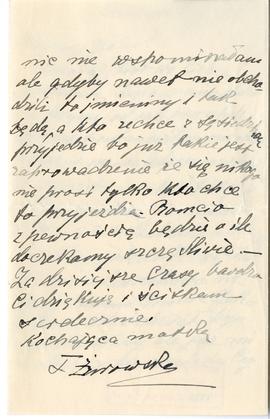 nic nie wspominałam
ale gdyby nawet nie obcho
dzili to imieniny i tak
będą, a kto zechce z sąsiadów
przyjedzie to już takie jest
zaprowadzenie że się nikogo
nie prosi tylko kto chce
to przyjeżdża. Romcio
z pewnością będzie o ile
doczekamy szczęśliwie —
Za dzisiejsze czasy bardzo
Ci dziękuję i ściskam
serdecznie.
Kochająca matka
Żurowska